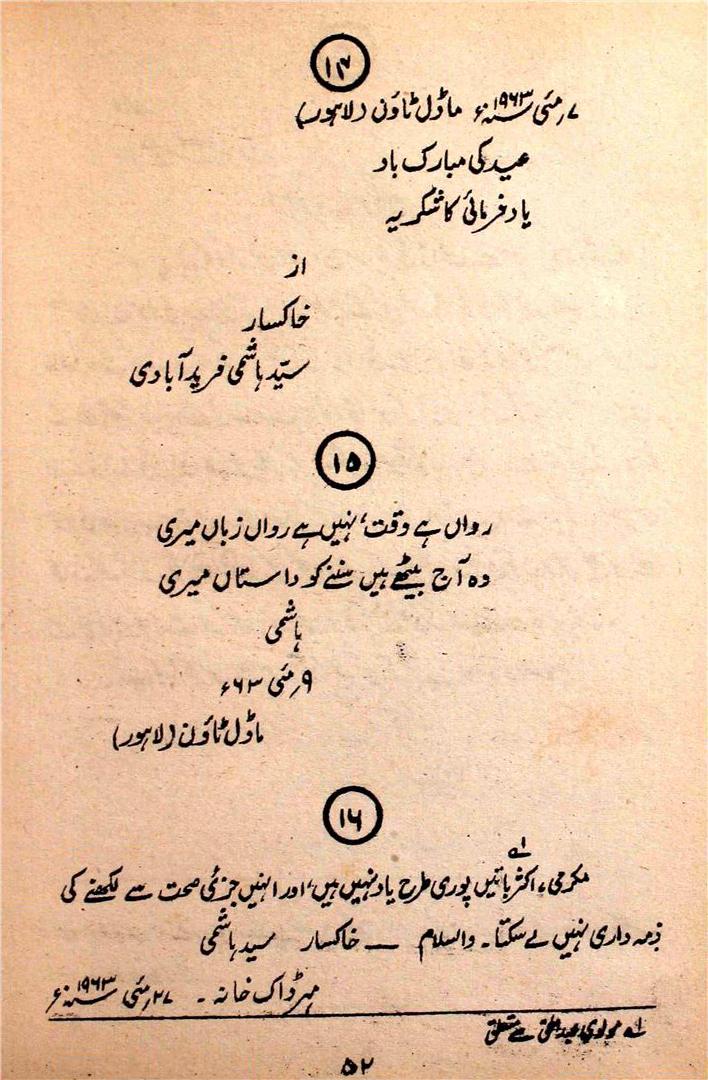 ۱۴
۷؍ مئی ۱۹۶۳ء ماڈل ٹاؤن (لاہور)
عید کی مبارک باد
یاد فرمائی کا شکریہ
از
خاکسار
سیّد ہاشمی فریدآبادی
۱۵
رواں ہے وقت، نہیں ہے رواں زباں میری
وہ آج بیٹھے ہیں سننے کو داستاں میری
ہاشمی
۹؍ مئی ۶۳ء
ماڈل ٹاؤن (لاہور)
۱۶
مکرمی، اکثر باتیں۱ پوری طرح یاد نہیں ہیں، اور انہیں جزئی صحت سے لکھنے کی
ذمہ داری نہیں لے سکتا۔ والسلام — خاکسار سید ہاشمی
مہر ڈاک خانہ۔ ۲۷؍ مئی ۱۹۶۳ء
۱ مولوی عبدالحق سے متعلق
۵۲